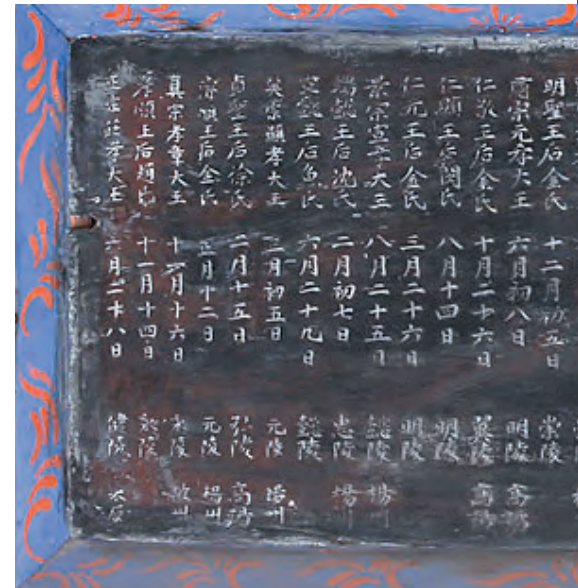 明聖王后金氏 十二月初五日 崇陵
肅宗元孝大王 六月初八日 明陵 高陽
仁敬王后金氏 十月二十六日 翼陵 高陽
仁顯王后閔氏 八月十四日 明陵
仁元王后金氏 三月二十六日 明陵
景宗宣孝大王 八月二十五日 懿陵 楊州
端懿王后沈氏 二月初七日 惠陵 楊州
宣懿王后魚氏 六月二十九日 懿陵
英宗顯孝大王 三月初五日 元陵 楊州
貞聖王后徐氏 二月十五日 弘陵 高陽
王后金氏 正月十二日 元陵 楊州
眞宗孝章大王 十一月十六日 永陵 坡州
孝順王后趙氏 十一月十四日
正宗莊孝大王 六月二十八日 健陵 水原